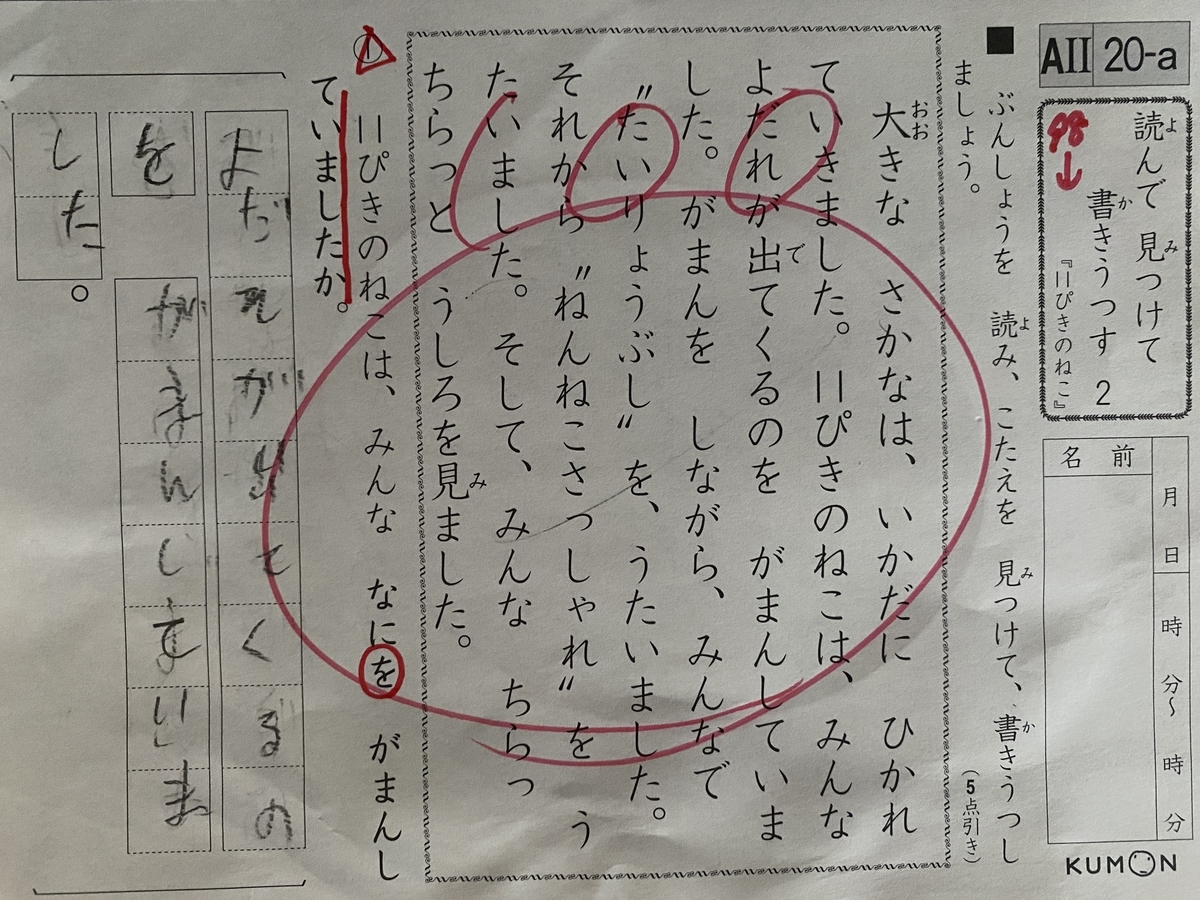 AII 20-a
読んで 見つけて
書きうつす 2
『11ぴきのねこ』
98
名前
月 日
時 分〜 時 分
KUMON
■ ぶんしょうを 読み、こたえを 見つけて、書きうつし
ましょう。
(5点引き)
大きな さかなは、いかだに ひかれ
ていきました。11ぴきのねこは、みんな
よだれが出てくるのを がまんしていま
した。がまんを しながら、みんなで
〝たいりょうぶし〟を、うたいました。
それから 〝ねんねこさっしゃれ〟を う
たいました。そして、みんな ちらっ
ちらっと うしろを見ました。
① 11ぴきのねこは、みんな なにを がまんし
ていましたか。
よだれがでてくるの
を がまんしていま
した。